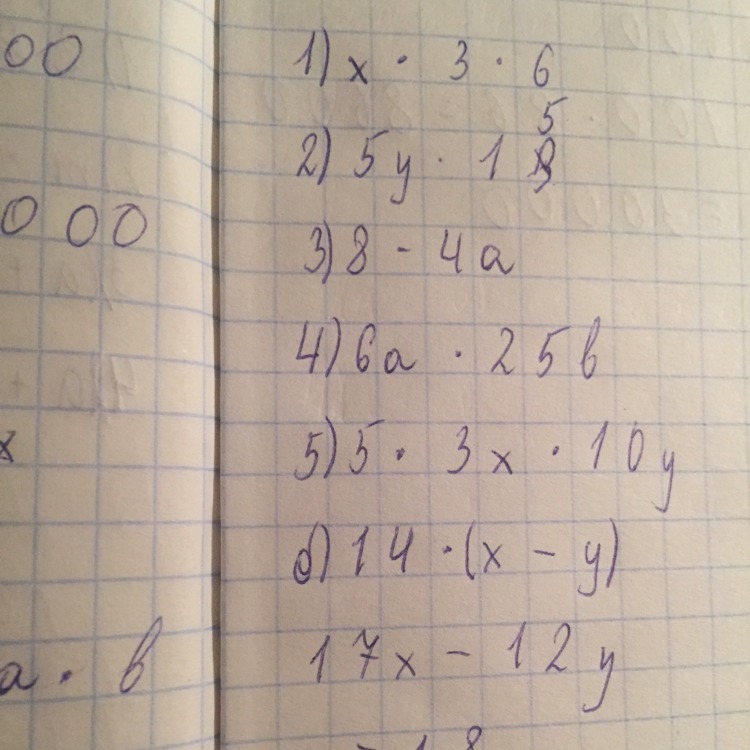 00
1) x · 3 · 6
2) 5y · 15
000
3) 8 - 4a
4) 6a · 25b
x
5) 5 · 3x · 10y
6) 14 · (x - y)
a · b
17x - 12y